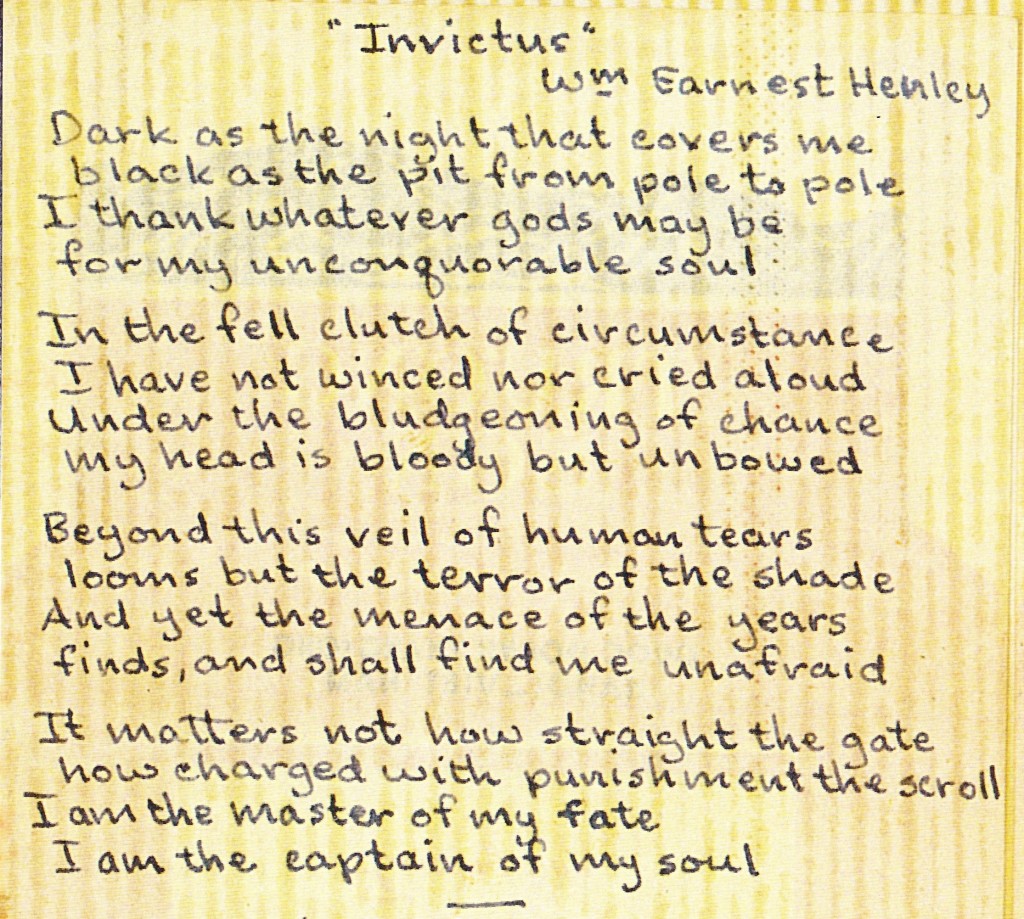 "Invictus"
Wm Earnest Henley
Dark as the night that covers me
black as the pit from pole to pole
I thank whatever gods may be
for my unconquorable soul
In the fell clutch of circumstance
I have not winced nor cried aloud
Under the bludgeoning of chance
my head is bloody but unbowed
Beyond this veil of human tears
looms but the terror of the shade
And yet the menace of the years
finds, and shall find me unafraid
It matters not how straight the gate
how charged with punishment the scroll
I am the master of my fate
I am the captain of my soul